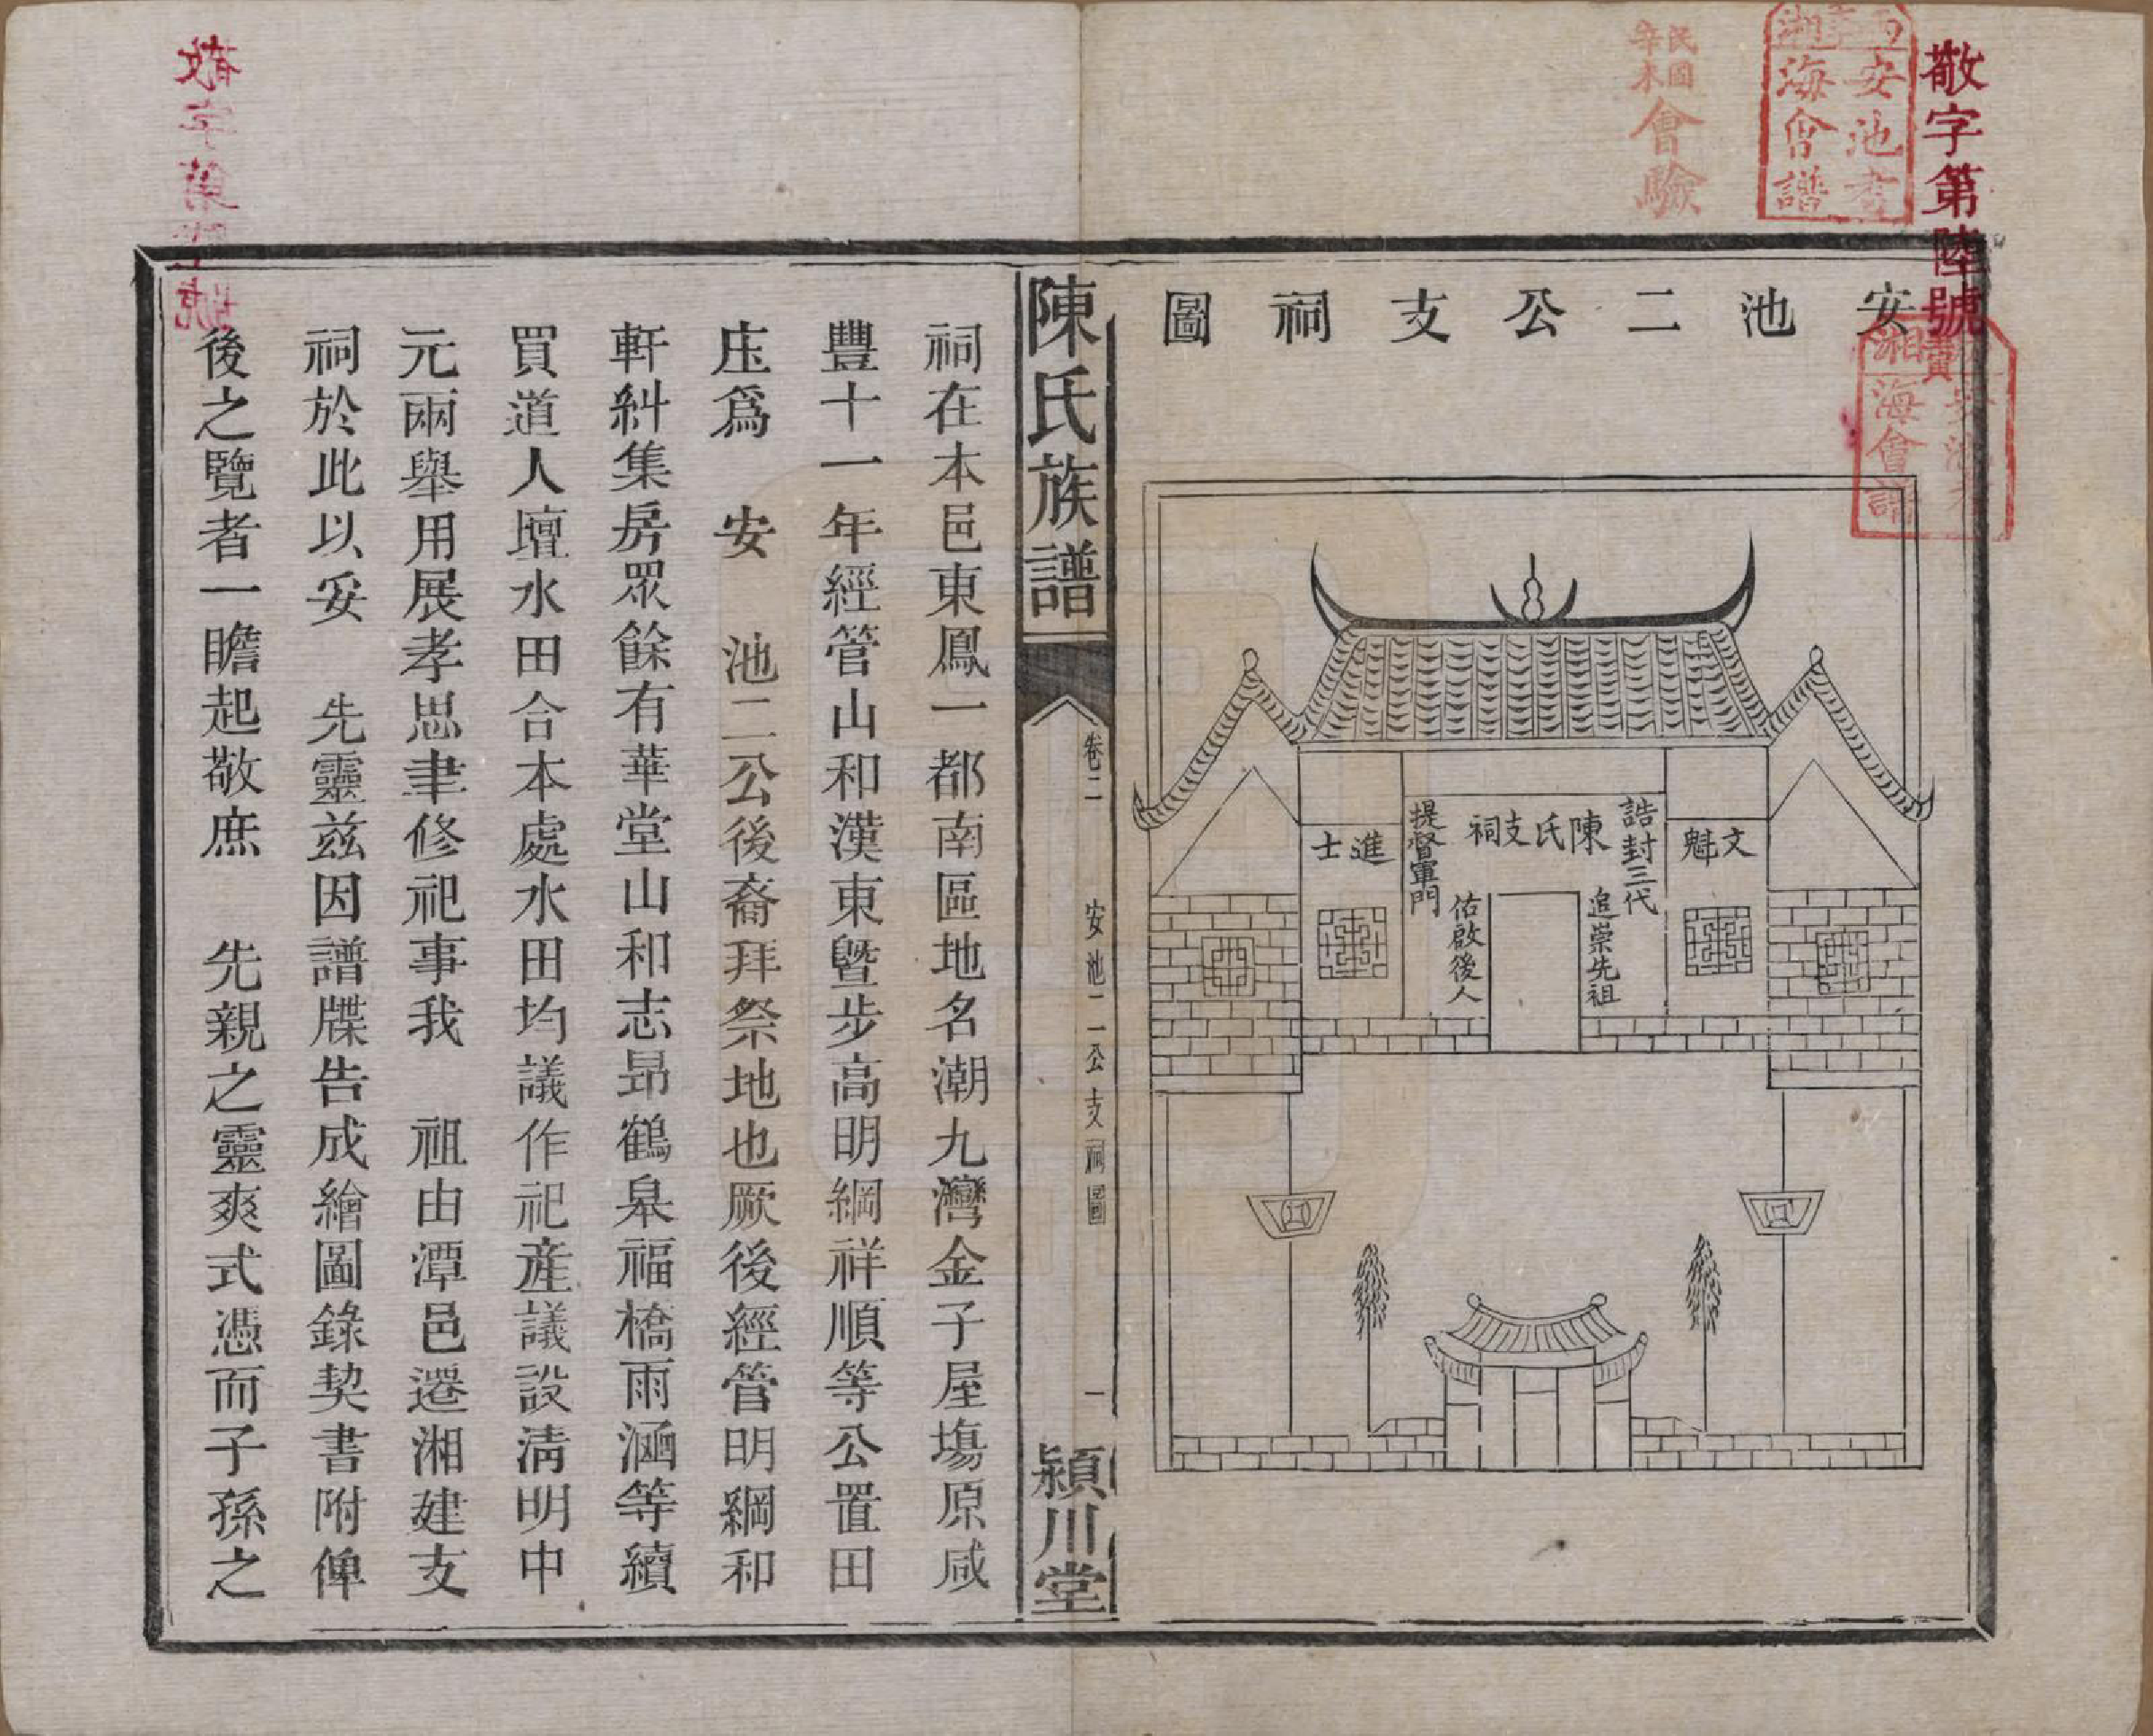 敬字第陸號
安池
湘海會譜
民國辛未
會驗
安池二公支祠圖
文魁
誥封三代
追崇先祖
陳氏支祠
佑啟後人
提督軍門
進士
陳氏族譜
卷二
安池二公支祠圖
一
潁川堂
祠在本邑東鳳一都南區地名潮九灣金子屋塲原咸
豐十一年經管山和漢東曁步高明綱祥順等公置田
庄爲 安 池二公後裔拜祭地也厥後經管明綱和
軒糾集房眾餘有華堂山和志昂鶴臯福橋雨涵等續
買道人壇水田合本處水田均議作祀產議設淸明中
元兩舉用展孝思聿修祀事我 祖由潭邑遷湘建支
祠於此以妥 先靈茲因譜牒告成繪圖錄契書附俾
後之覽者一瞻起敬庶 先親之靈爽式憑而子孫之